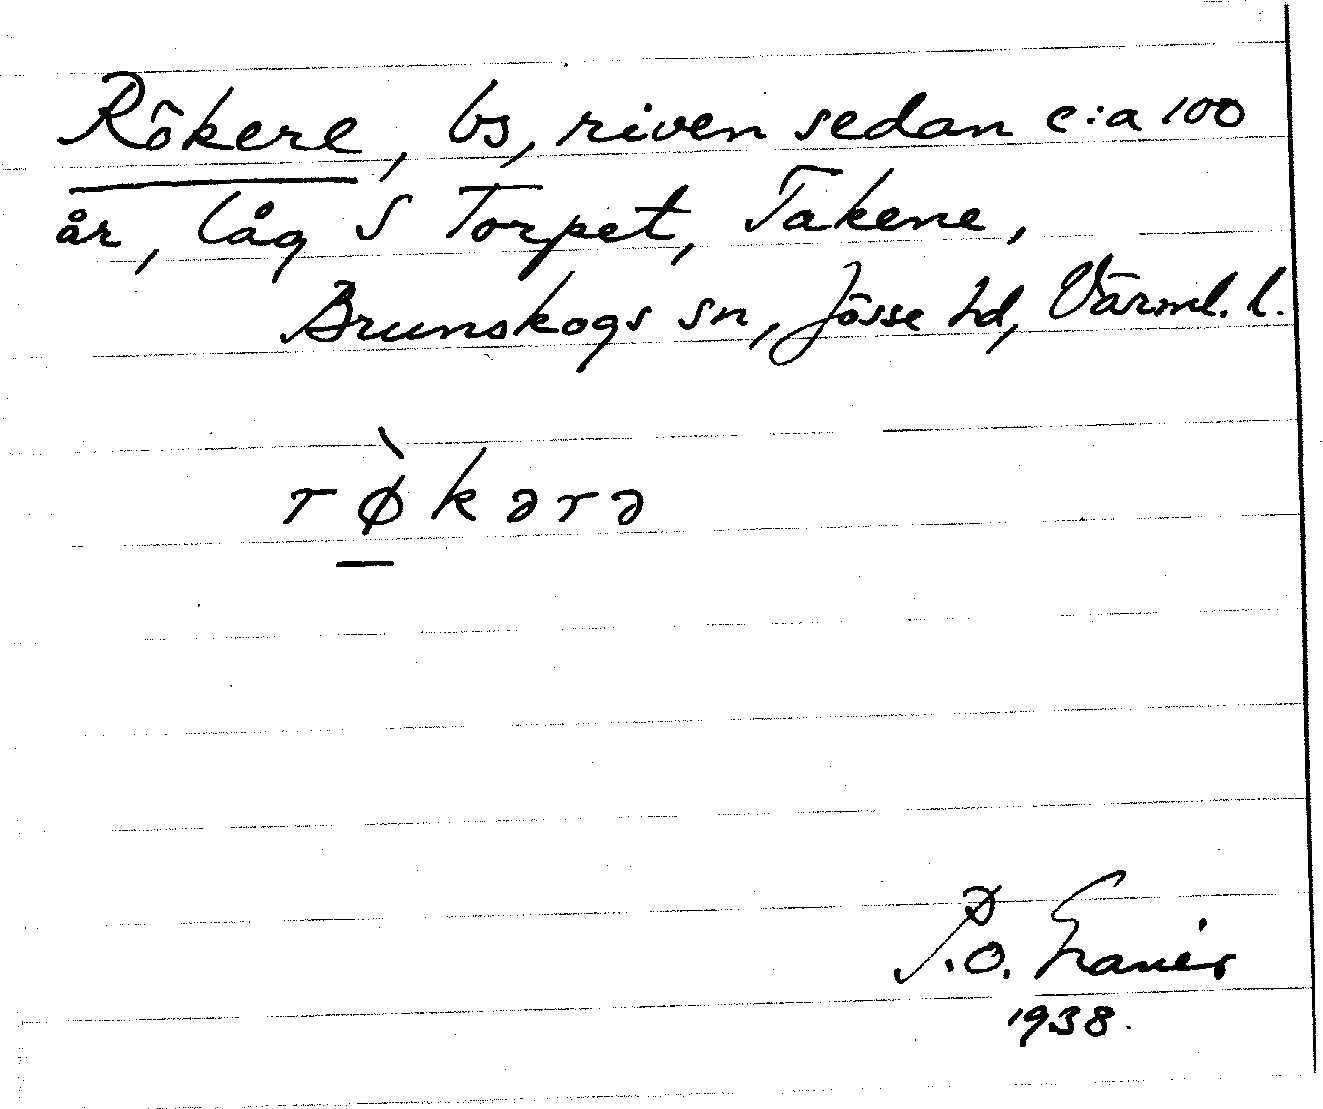 Rökere, bs, riven sedan c:a 100
år, låg S Torpet, Takene,
Brunskogs sn, Jösse hd, Värml. l.
rø̀kərə
P.O.
1938.